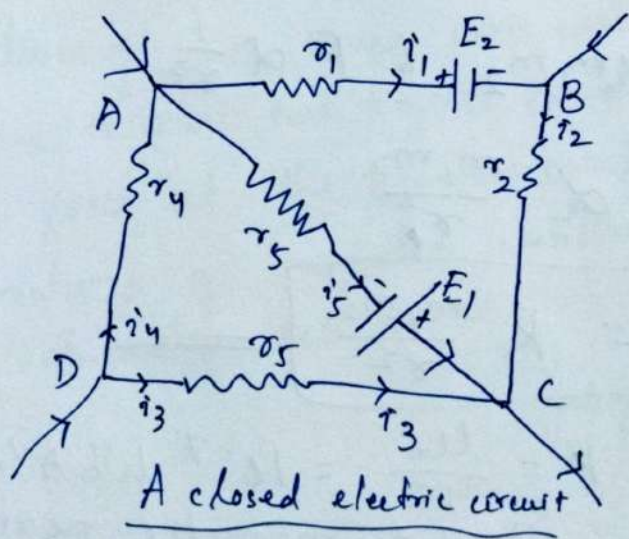 r1 i1 + E2 -
A B
i2
r2
r4
r5
i5 - E1
+
i4
D r5 C
i3 i3
A closed electric circuit